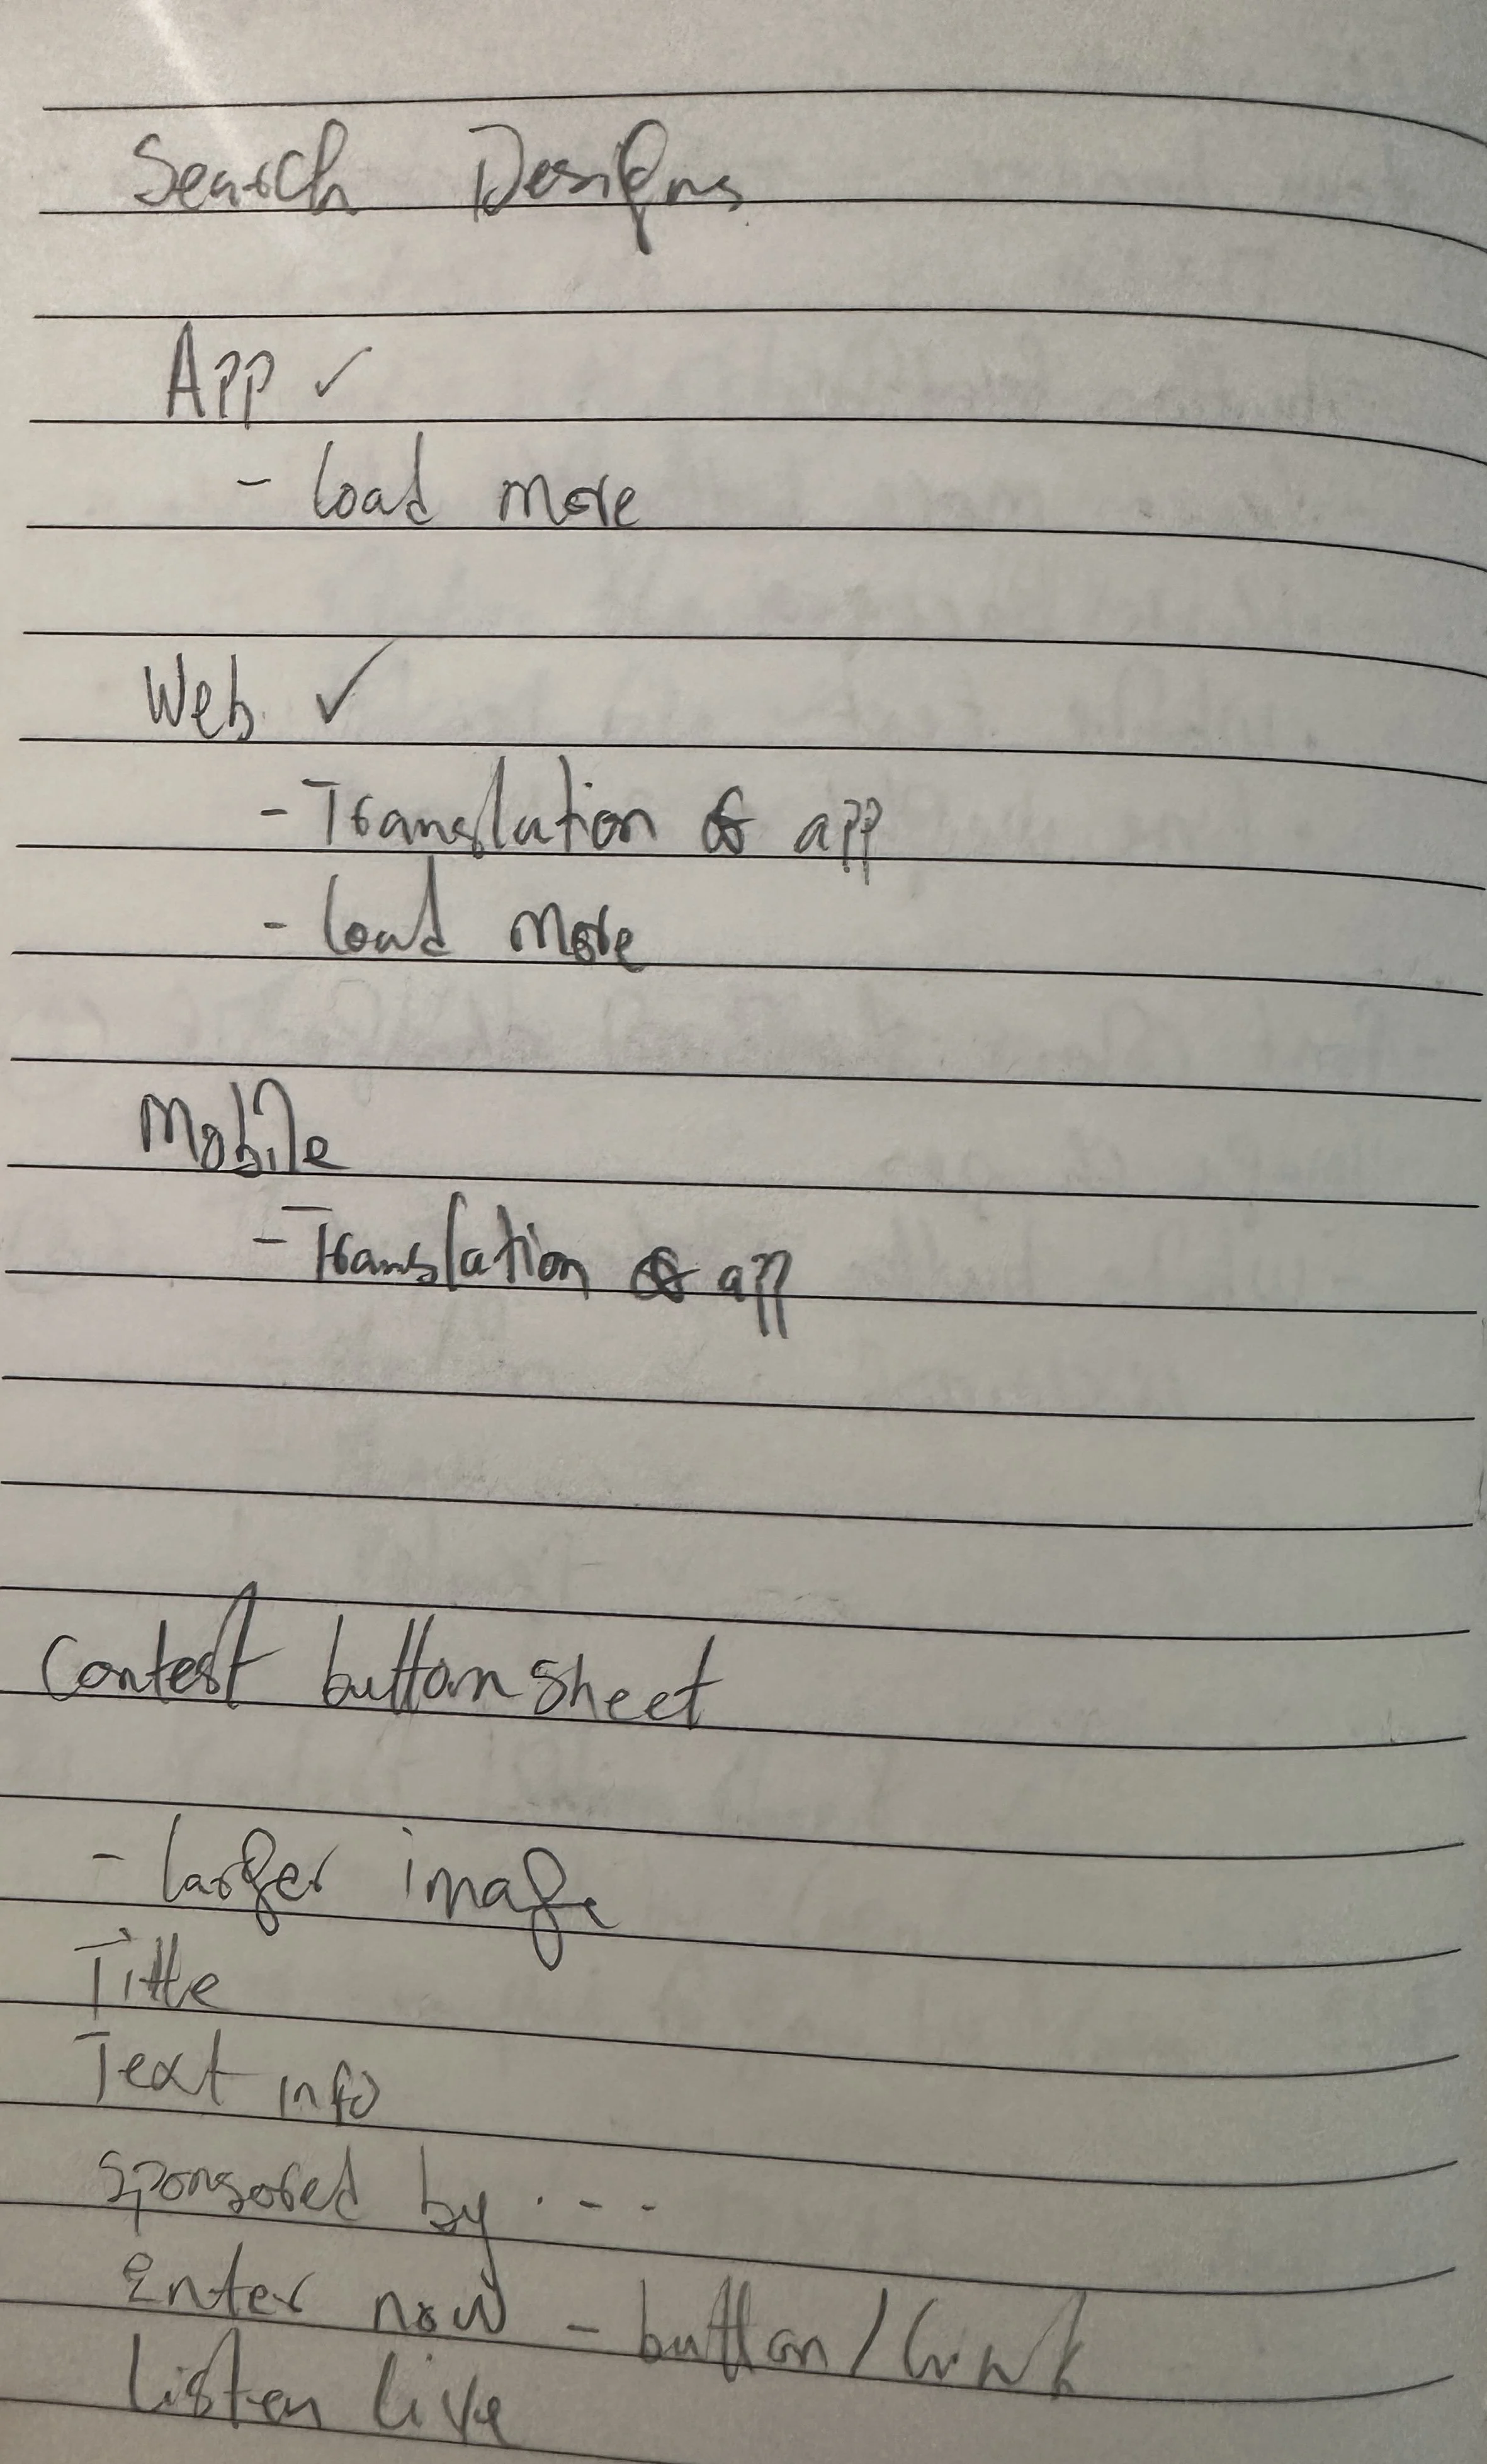 Search Designs
App ✓
- load more
Web ✓
- Translation of app
- load more
Mobile
- Translation of app
Contest buttom sheet
- larger image
Title
Text info
Sponsored by ...
Enter now - button / link
Listen live